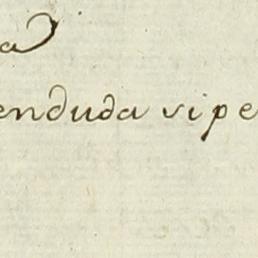 a
enduda si pe